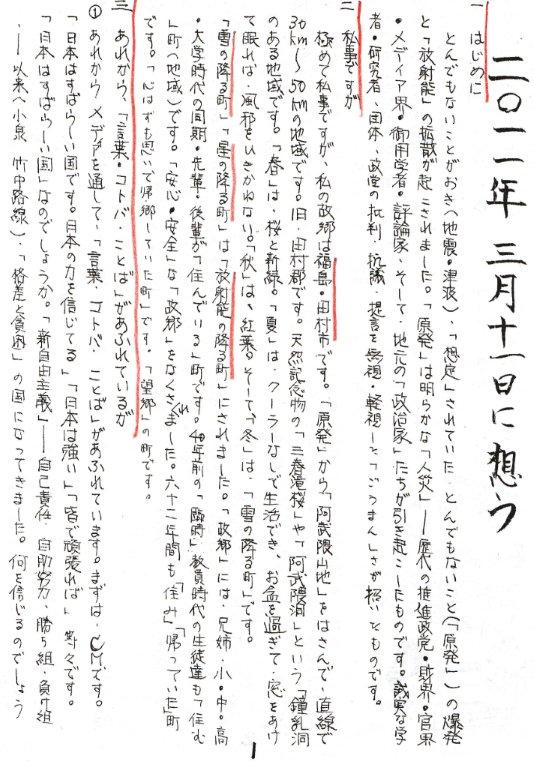 二〇一一年 三月十一日に想う
一 はじめに
とんでもないことがおき(地震・津波)、「想定」されていた とんでもないこと(「原発」)の爆発
と「放射能」の拡散が起こされました。「原発」は明らかな「人災」――歴代の推進政党・財界・官界
・メディア界・御用学者・評論家・そして、地元の「政治家」たちが引き起こしたものです。誠実な学
者・研究者・団体・政党の批判・抗議・提言を無視・軽視した「ごうまん」さが招いたものです。
二 私事ですが
極めて私事ですが、私の故郷は福島・田村市です。「原発」から「阿武隈山地」をはさんで、直線で
30km~50kmの地域です。旧・田村郡です。天然記念物の「三春滝桜」や「阿武隈洞」という「鐘乳洞
のある地域です。「春」は、桜と新緑。「夏」は、クーラーなしで生活でき、お盆を過ぎて、窓をあけ
て眠れば、風邪をひきかねない。「秋」は、紅葉。そして、「冬」は、「雪の降る町」です。
「雪の降る町」「星の降る町」は「放射能の降る町」にされました。「故郷」には、兄姉・小・中・高
・大学時代の同期・先輩・後輩が「住んでいる」町です。40年前の「臨時」教員時代の生徒達も「住む
」町(地域)です。「安心・安全」な「故郷」をなくされました。六十二年間も「住み」「帰っていた」町
です。「心はずも思いで帰郷していた町」です。「望郷」の町です。
三 あれから、「言葉・コトバ・ことば」があふれているが
① あれから メディアを通して、「言葉 コトバ・ことば」があふれています。まずは、CMです。
「日本はすばらしい国です。日本の力を信じてる」「日本は強い」「皆で頑張れば」 等々です。
「日本はすばらしい国」なのでしょうか。「新自由主義」――自己責任 自助努力、勝ち組・負け組
――以来(小泉 竹中路線)、「格差と貧困」の国になってきました。何を信じるのでしょう
1